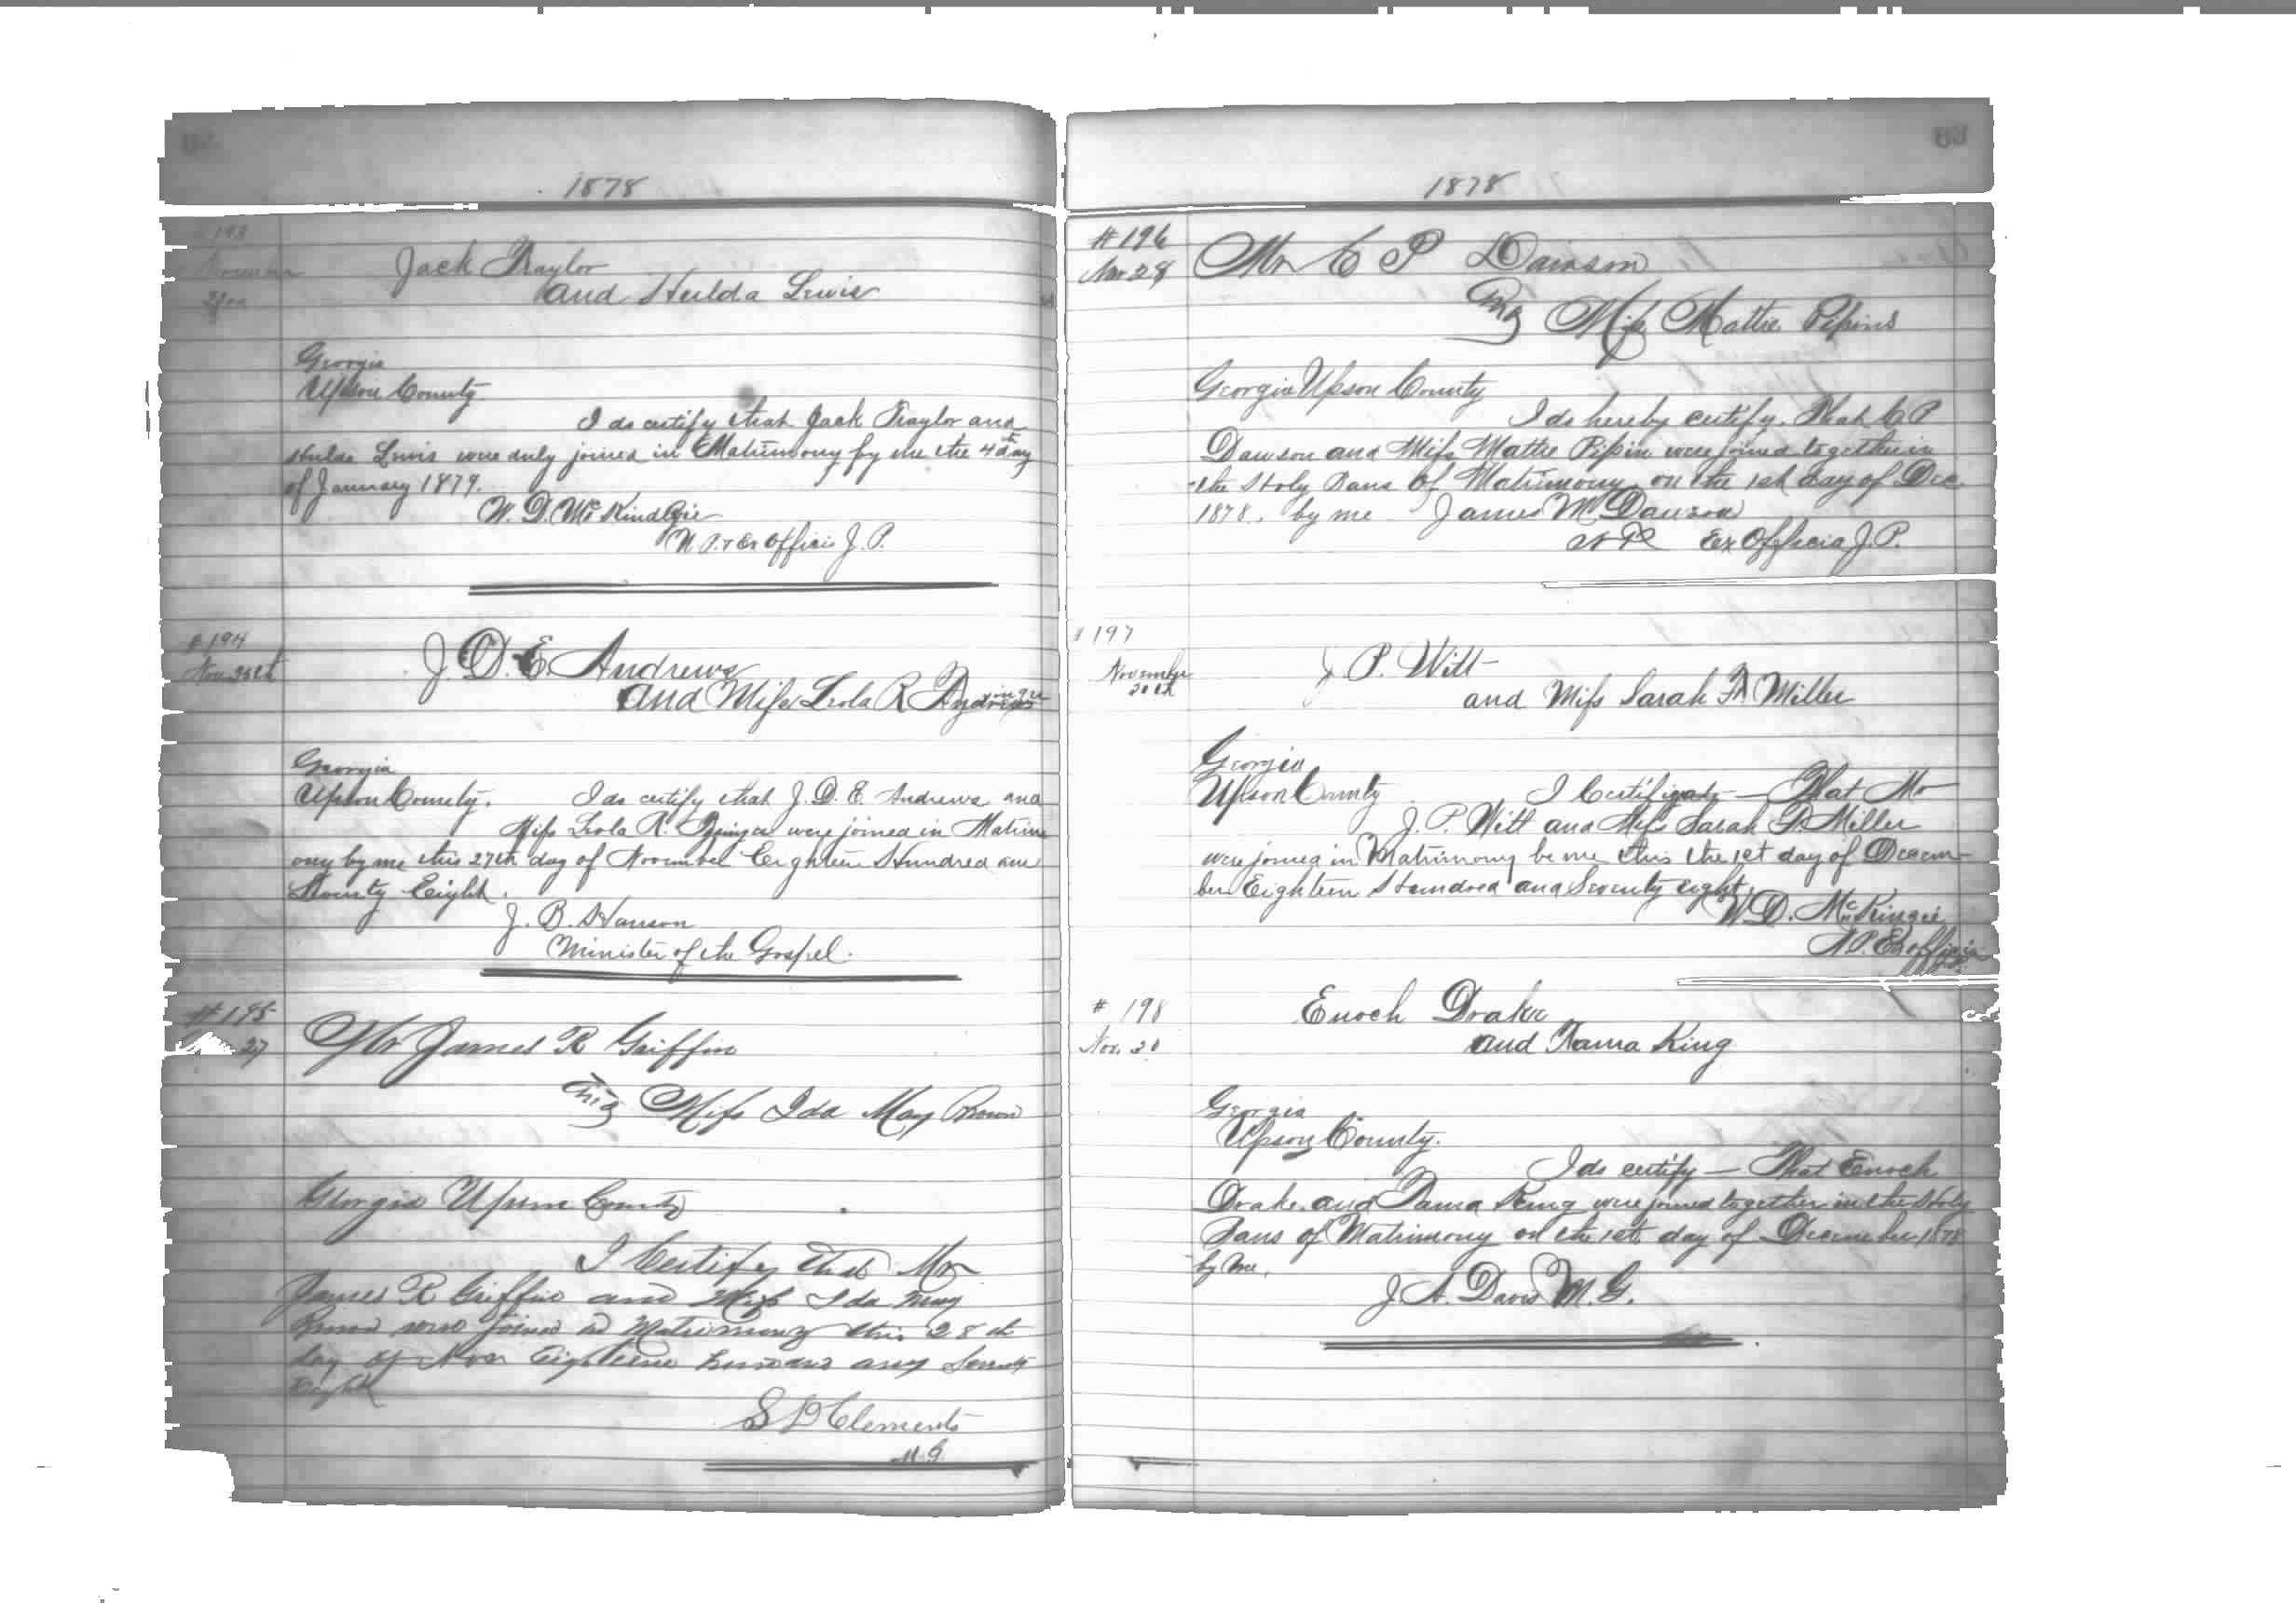 1878
# 193
November
Jack Traylor
and Hulda Lewis
Georgia
Upson County
I do certify that Jack Traylor and
Hulda Lewis were duly joined in Matrimony by me the 4th day
of January 1879.
N. P. & Ex Officio J. P.
# 194
J. D. E. Andrews
and Miss Leola R
Georgia
Upson County. I do certify that J. D. E. Andrews and
Miss Leola R. were joined in Matrim
ony by me this 27th day of November Eighteen Hundred and
Seventy Eight.
J. B. Hanson
Minister of the Gospel.
# 195
27
Mr James R Griffin
and
Miss Ida May Brown
Georgia Upson County
I Certify that Mr
James R Griffin and Miss Ida May
Brown were joined in Matrimony this 28th
day of Nov Eighteen hundred and Seventy
Eight
S D Clements
M. G.
1878
# 196
Nov 28
Mr C P Dawson
and
Miss Mattie Pipins
Georgia Upson County
I do hereby certify. That C P
Dawson and Miss Mattie Pipin were joined together in
the Holy Bans of Matrimony on the 1st day of Dec
1878. by me James M Dawson
N P Ex Officia J. P.
# 197
November
J P. Witt
and Miss Sarah Miller
Georgia
Upson County I Certify That Mr
J. P. Witt and Miss Sarah Miller
were joined in Matrimony be me this the 1st day of Decem-
ber Eighteen Hundred and Seventy eight.
W. D. McKinzie
N. P. Ex officio
# 198
Nov. 30
Enoch Drake
and Tama King
Georgia
Upson County.
I do certify — That Enoch
Drake and Tama King were joined together in the Holy
Bans of Matrimony on the 1st day of December 1878
by me,
J A. Davis M. G.